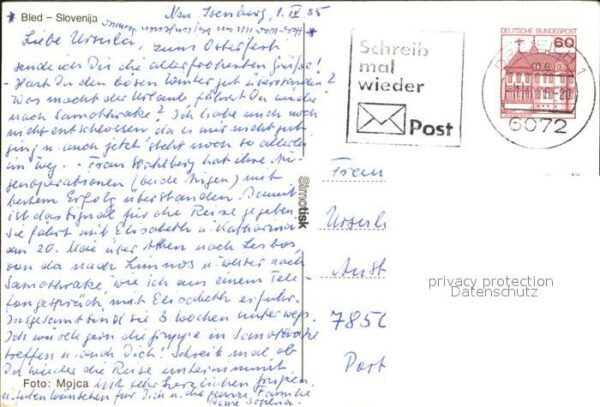 * Bled – Slovenija
Neu Isenburg, 1. IV. 85
Liebe Ursula, zum Osterfest
sende ich Dir die allerfrohesten Grüße!
- Hast Du den bösen Winter gut überstanden?
Was macht der Urlaub, fährst Du wieder
nach Samothrake? Ich habe mich noch
nicht entschlossen, da es mir nicht gut
ging u. auch jetzt steht noch so allerlei
im Weg. - Frau Wahlberg hat ihre
operationen (beide Augen) mit
bestem Erfolg überstanden. Damit
ist das Signal für die Reise gegeben.
Sie fährt mit Elisabeth u. Katharina
am 20. Mai über Athen nach Lesbos,
von da nach Limnos u. weiter nach
Samothrake, wie ich aus einem Tele-
fongespräch mit Elisabeth erfuhr.
Insgesamt sind sie 3 Wochen unterwegs.
Ich würde gern die Gruppe in Samothrake
treffen u. auch Dich! Schreib mal ob
Du wieder die Reise unternimmst.
Mit sehr herzlichen Grüßen
u. guten Wünschen für Dich u. die ganze Familie
Deine
Foto: Mojca
Simotisk
Schreib
mal
wieder
Post
DEUTSCHE BUNDESPOST
60
6072
Frau
Ursula
7850
privacy protection
Datenschutz